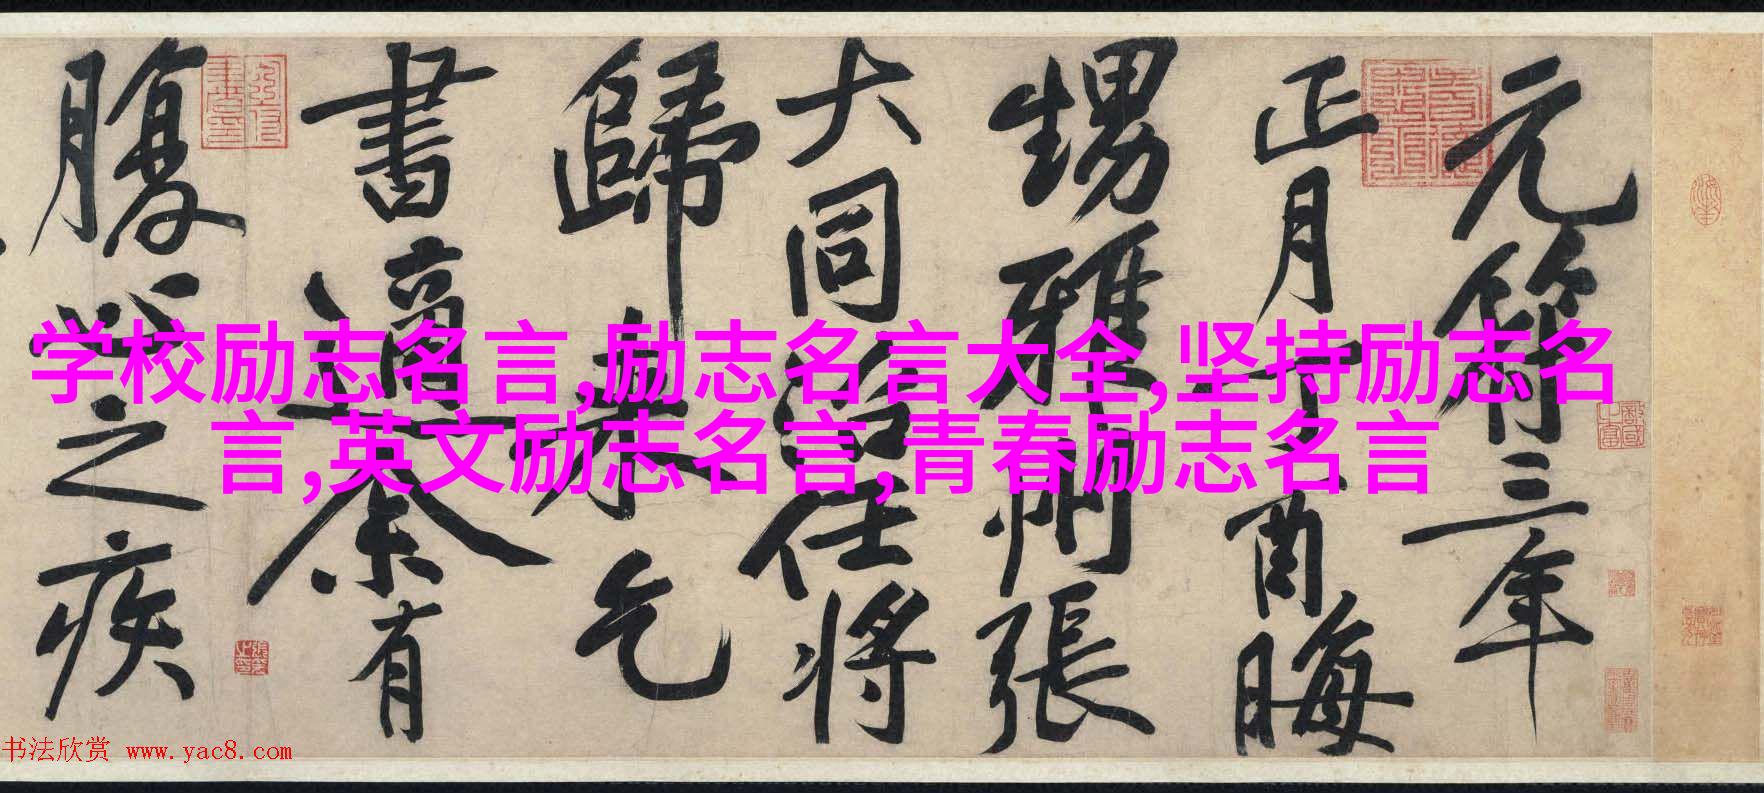 元符三年
正月丁酉晦
甥雅州張
大同治任將
歸來乞
書適余有
腹心之疾
学校励志名言,励志名言大全,坚持励志名
言,英文励志名言,青春励志名言
书法欣赏 www.yac8.com